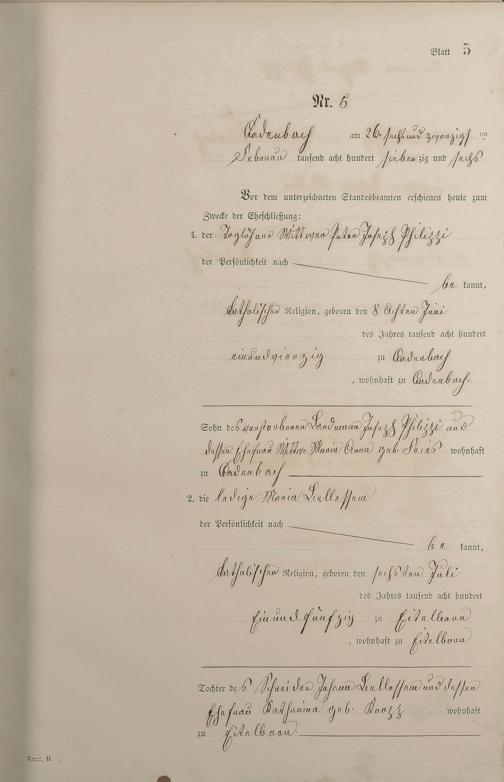 Blatt 5
Nr. 5
Cadenbach am 26. sechsundzwanzigsten
Februar tausend acht hundert siebenzig und sechs
Vor dem unterzeichneten Standesbeamten erschienen heute zum
Zwecke der Eheschließung:
1. der Taglöhner Wittwer Peter Joseph Philippi
der Persönlichkeit nach
be kannt,
katholischer Religion, geboren den 8. Achten Juni
des Jahres tausend acht hundert
einundvierzig zu Cadenbach
, wohnhaft zu Cadenbach.
Sohn des verstorbenen Landmann Joseph Philippi und
dessen Ehefrau Wittwe Maria Anna geb. wohnhaft
zu Cadenbach
2. die ledige Maria
der Persönlichkeit nach
be kannt,
katholischer Religion, geboren den sechsten Juli
des Jahres tausend acht hundert
Einundfünfzig zu Eitelborn
, wohnhaft zu Eitelborn
Tochter des Schneider Johann und dessen
Ehefrau Katharina geb. wohnhaft
zu Eitelborn